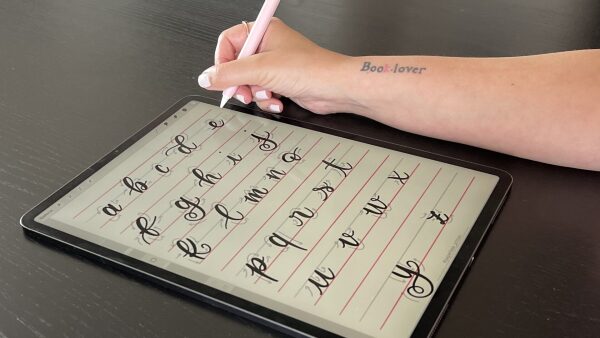 Book-lover
a b c d e
f g h i j
k l m n o
p q r s t
u v w x
y z